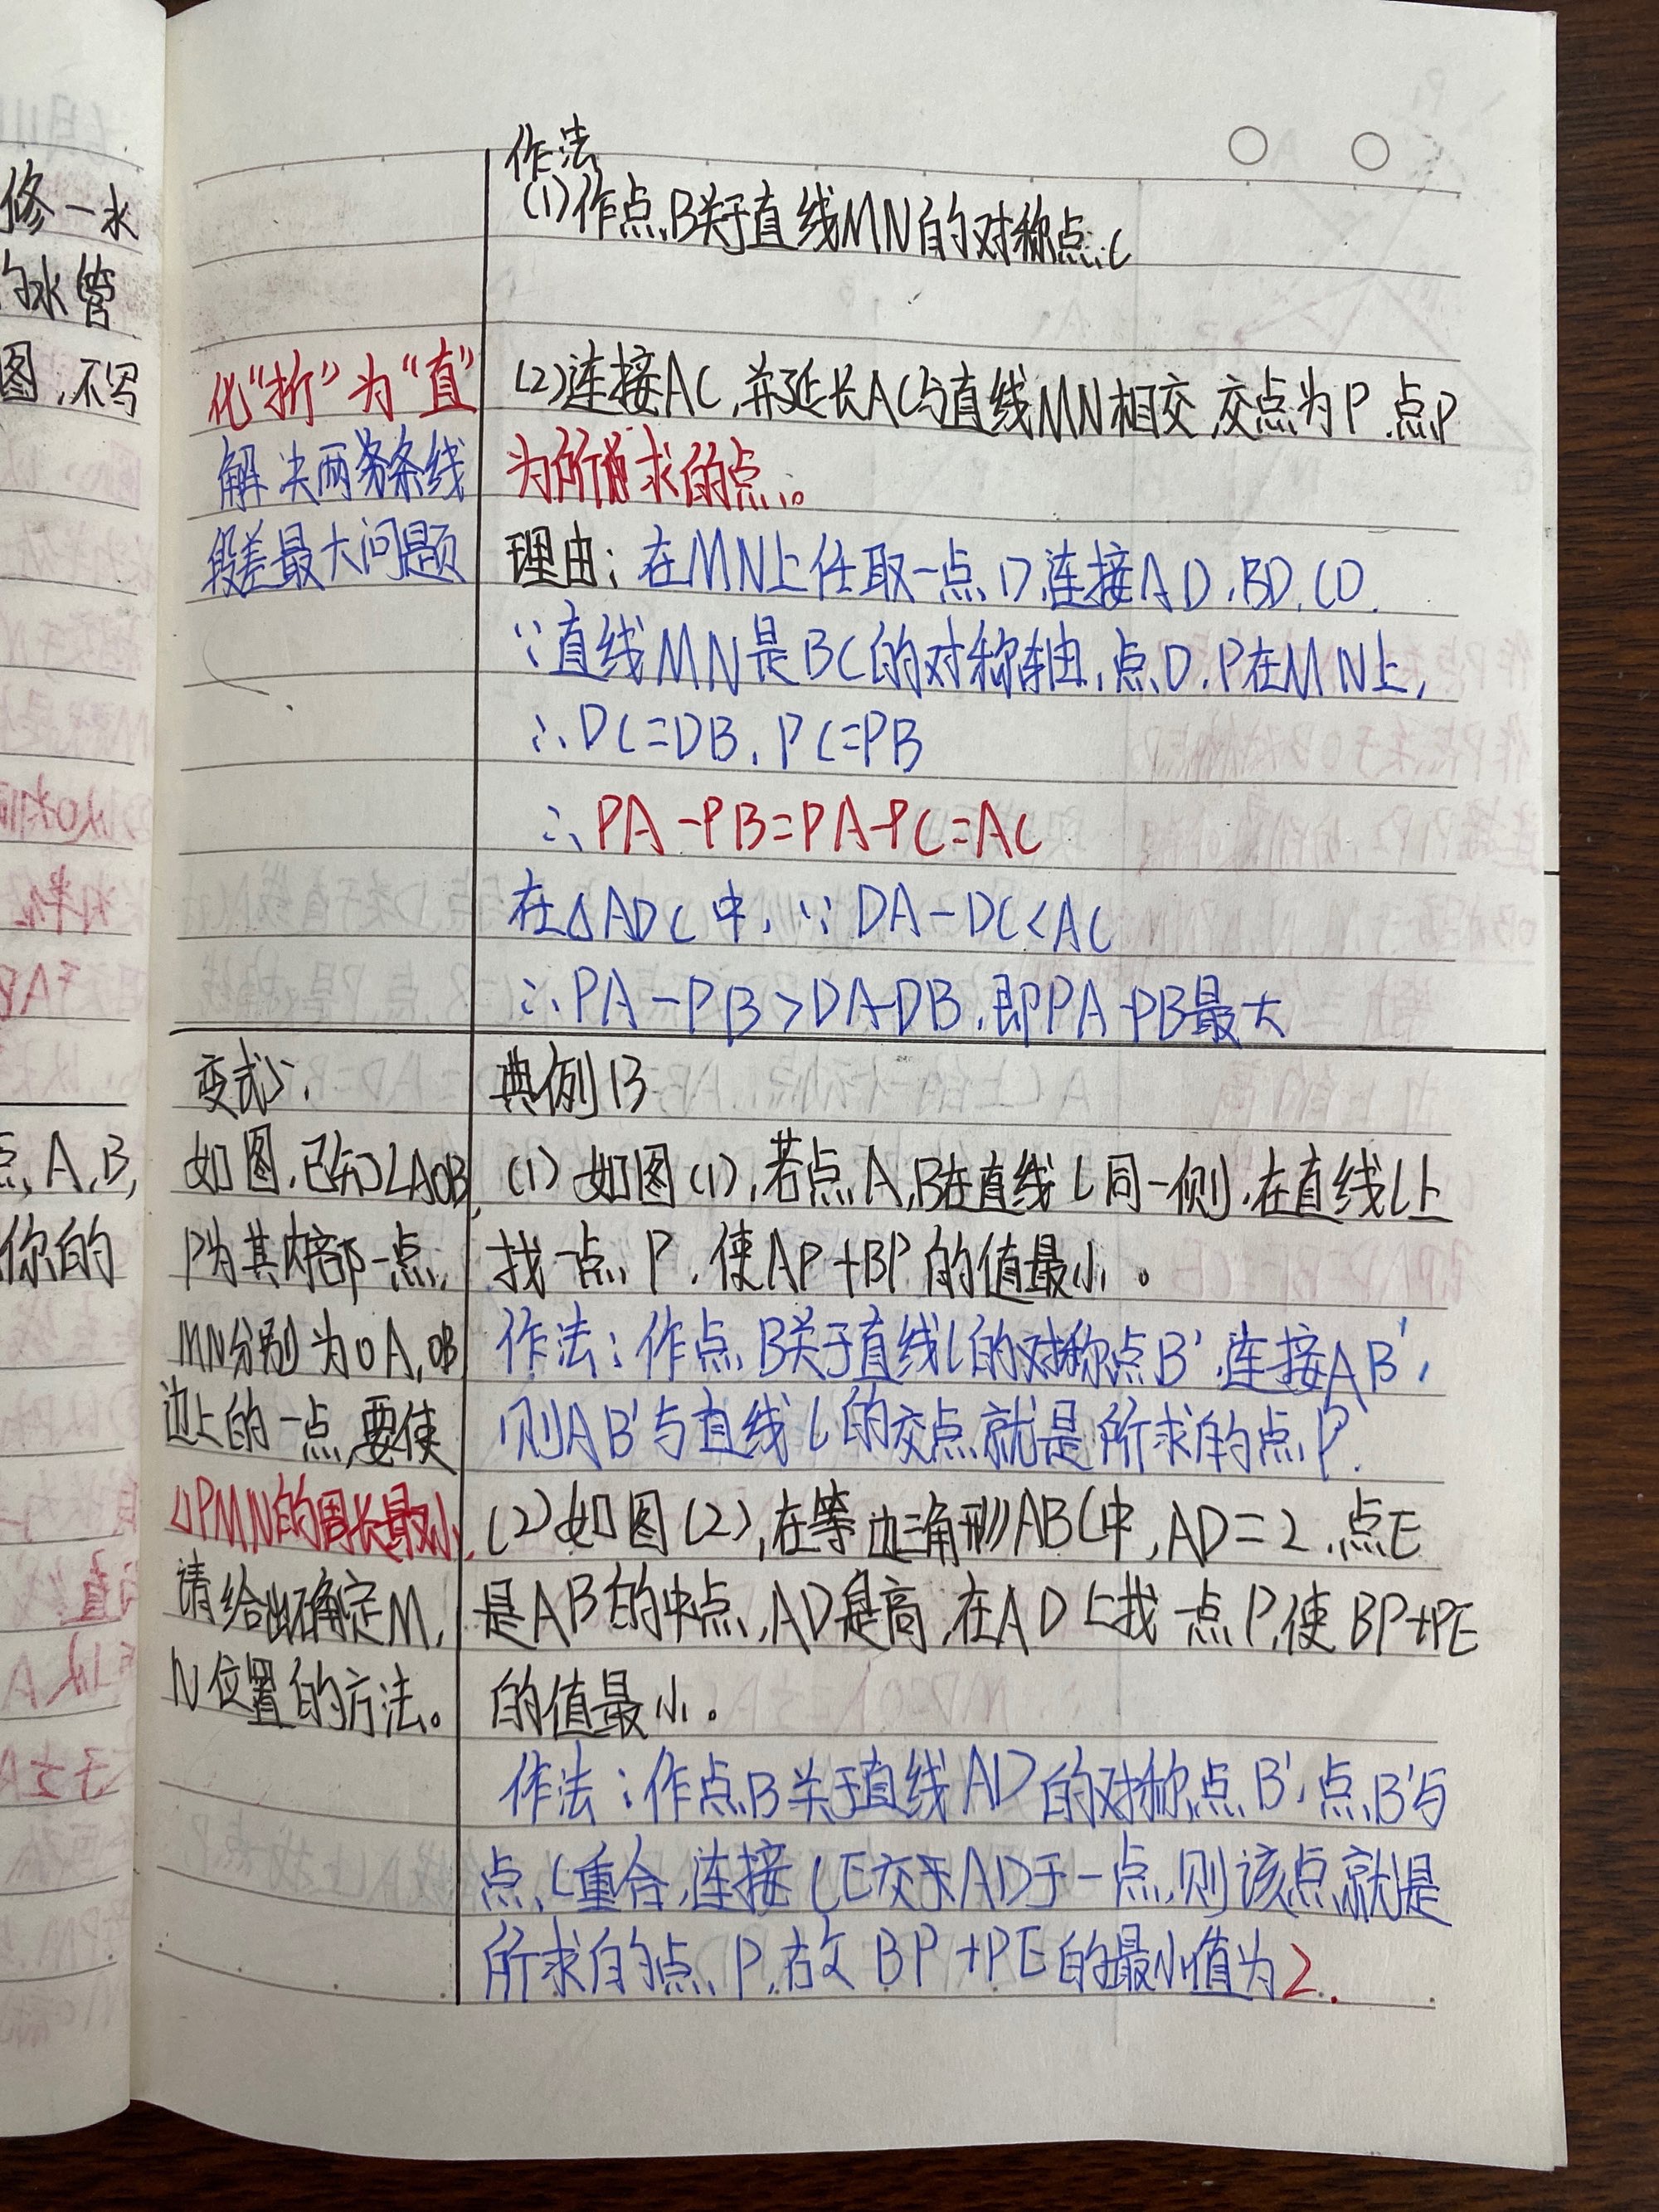 修一水
的水管
图,不写
点,A,B,
你的
作法
(1)作点B关于直线MN的对称点C
化“折”为“直”
解决两条线
段差最大问题
(2)连接AC,并延长AC与直线MN相交,交点为P,点P
为所求的点。
理由:在MN上任取一点D,连接AD,BD,CD.
∵直线MN是BC的对称轴,点D,P在MN上,
∴DC=DB,PC=PB
∴PA-PB=PA-PC=AC
在△ADC中,∵DA-DC<AC
∴PA-PB>DA-DB,即PA-PB最大
变式
如图,已知∠AOB,
P为其内部一点,
MN分别为OA,OB
边上的一点,要使
△PMN的周长最小,
请给出确定M,
N位置的方法。
典例13
(1)如图(1),若点A,B在直线l同一侧,在直线l上
找一点P,使AP+BP的值最小。
作法:作点B关于直线l的对称点B',连接AB',
则AB'与直线l的交点就是所求的点P.
(2)如图(2),在等边三角形ABC中,AD=2,点E
是AB的中点,AD是高,在AD上找一点P,使BP+PE
的值最小。
作法:作点B关于直线AD的对称点B',点B'与
点C重合,连接CE交于AD于一点,则该点就是
所求的点P,故BP+PE的最小值为2.